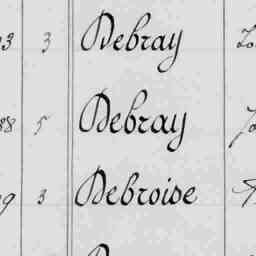 3 Debray
88 5 Debray
9 3 Debroise